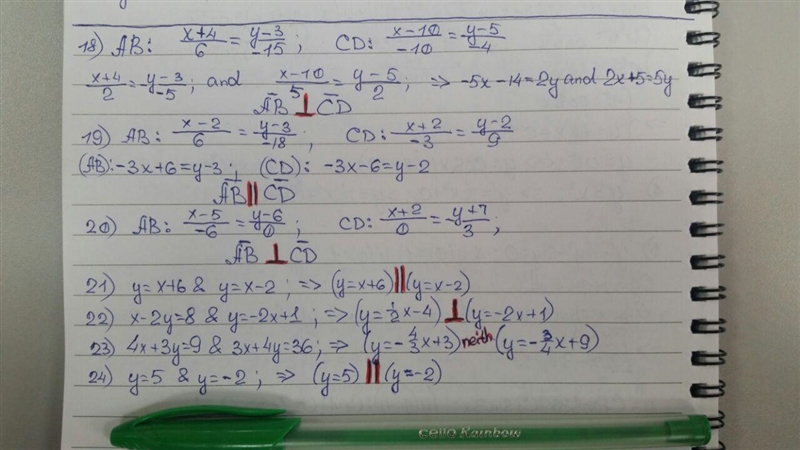 18) AB: (x+4)/6 = (y-3)/-15; CD: (x-10)/-10 = (y-5)/-4
(x+4)/2 = (y-3)/-5; and (x-10)/5 = (y-5)/2; ⇒ -5x-14=2y and 2x+5=5y
AB ⊥ CD
19) AB: (x-2)/6 = (y-3)/-18; CD: (x+2)/-3 = (y-2)/9
(AB): -3x+6=y-3; (CD): -3x-6=y-2
AB || CD
20) AB: (x-5)/-6 = (y-6)/0; CD: (x+2)/0 = (y+7)/3;
AB ⊥ CD
21) y=x+6 & y=x-2; ⇒ (y=x+6) || (y=x-2)
22) x-2y=8 & y=-2x+1; ⇒ (y=1/2x-4) ⊥ (y=-2x+1)
23) 4x+3y=9 & 3x+4y=36; ⇒ (y=-4/3x+3) neith. (y=-3/4x+9)
24) y=5 & y=-2; ⇒ (y=5) || (y=-2)
cello Rainbow